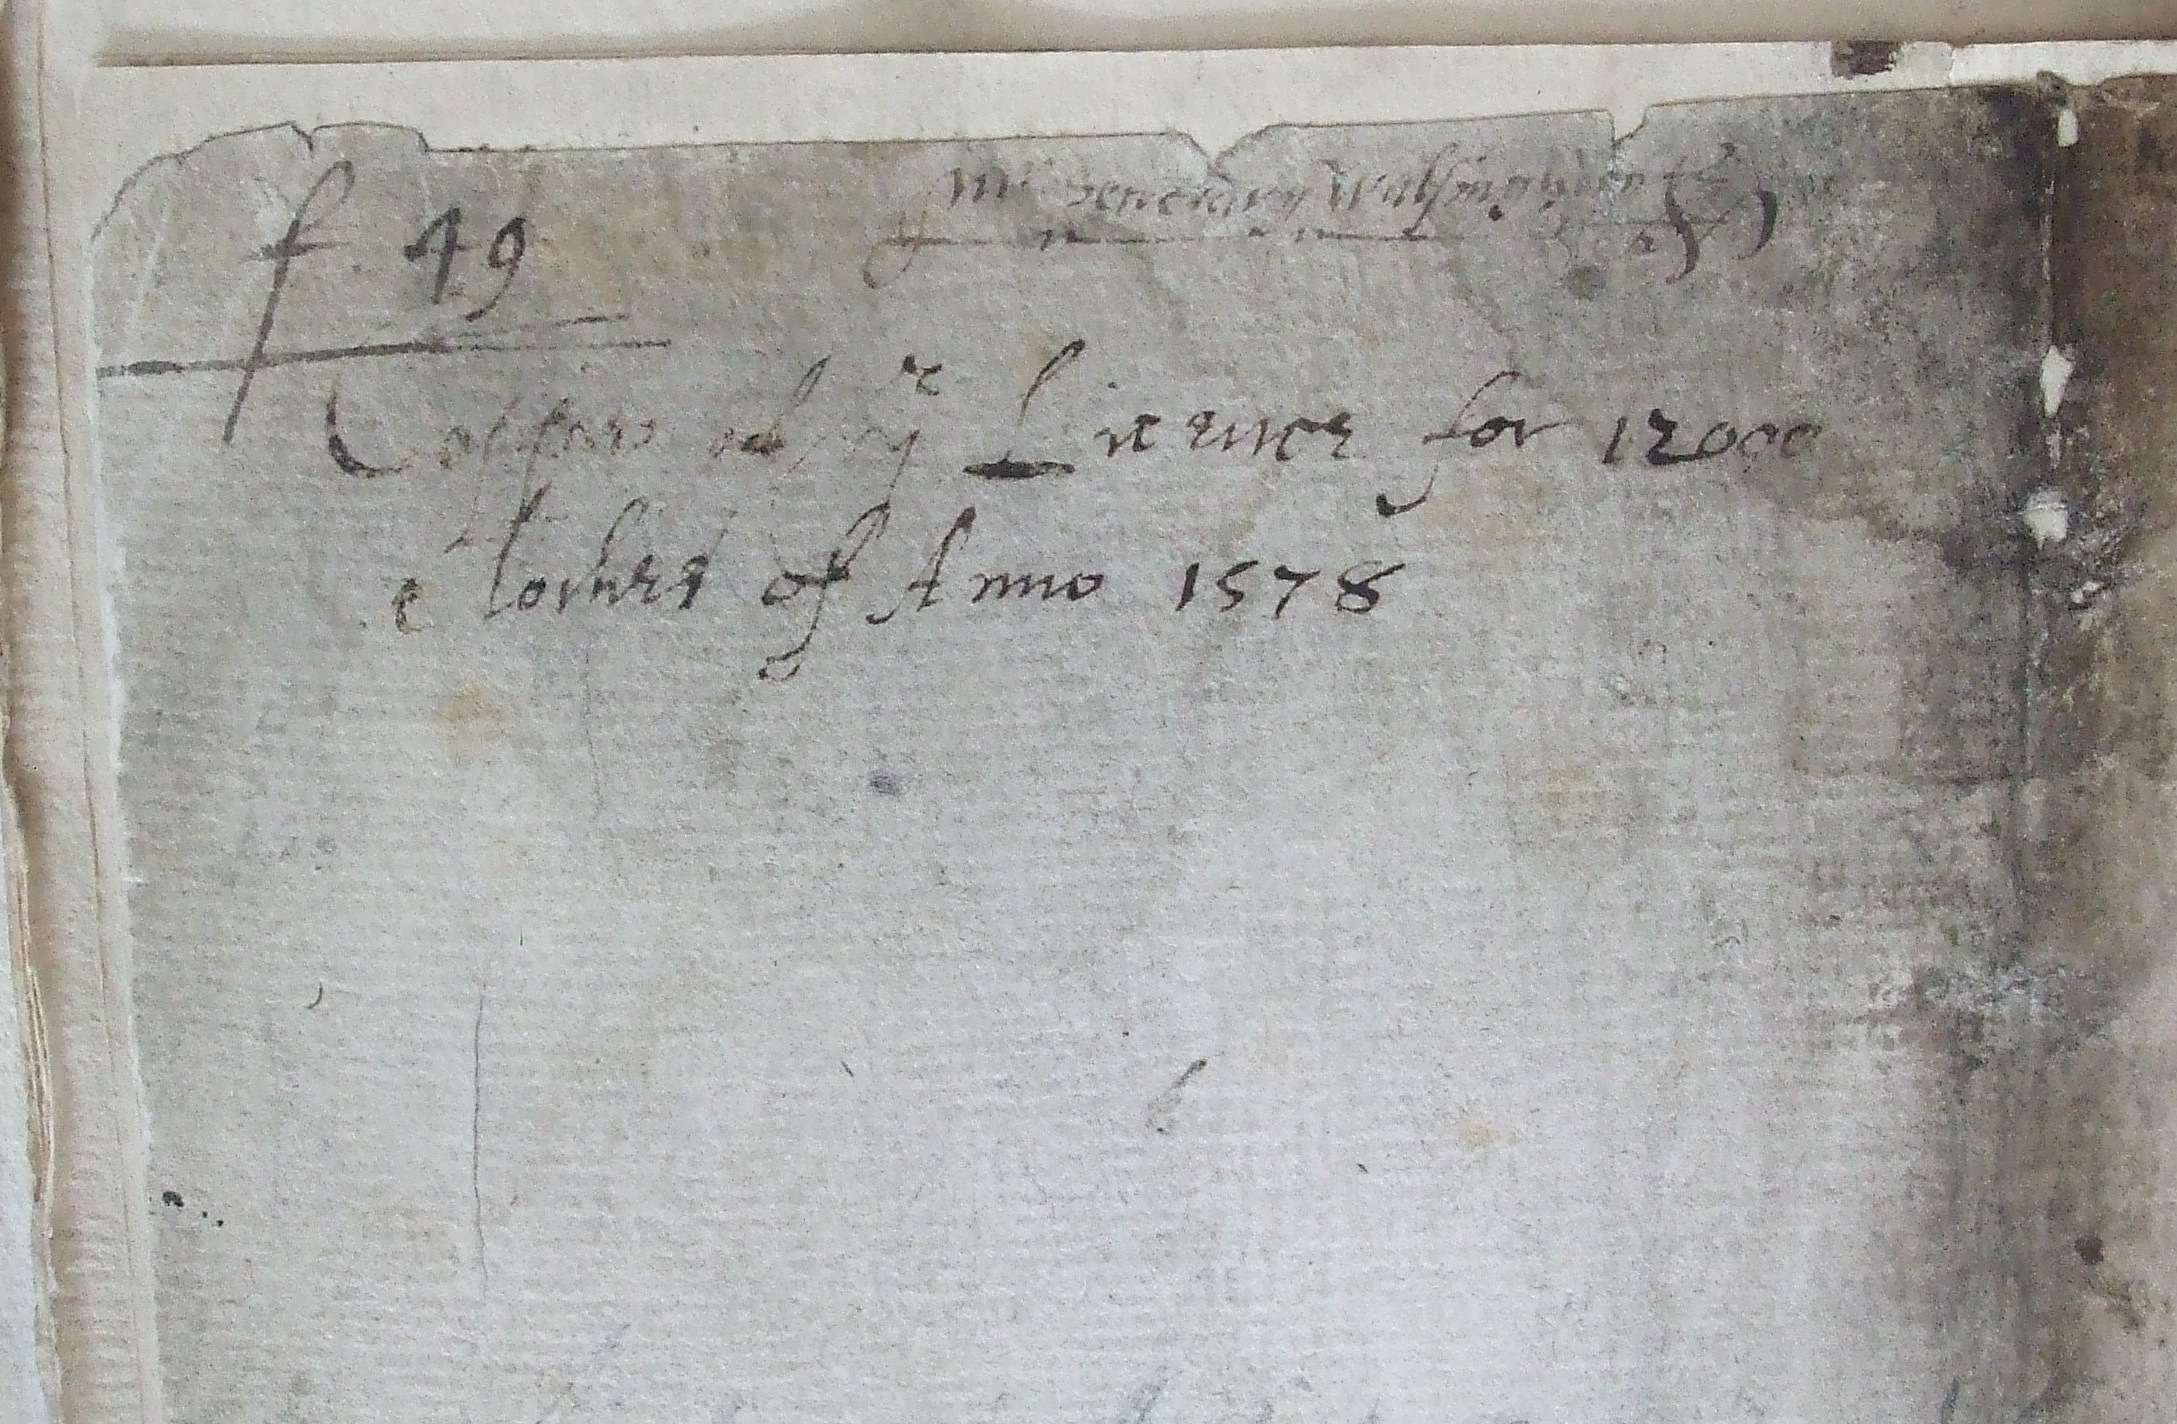 Mr Secretary Walsingham
f. 49
of yᵉ Licence for 12000
clothes of Anno 1578